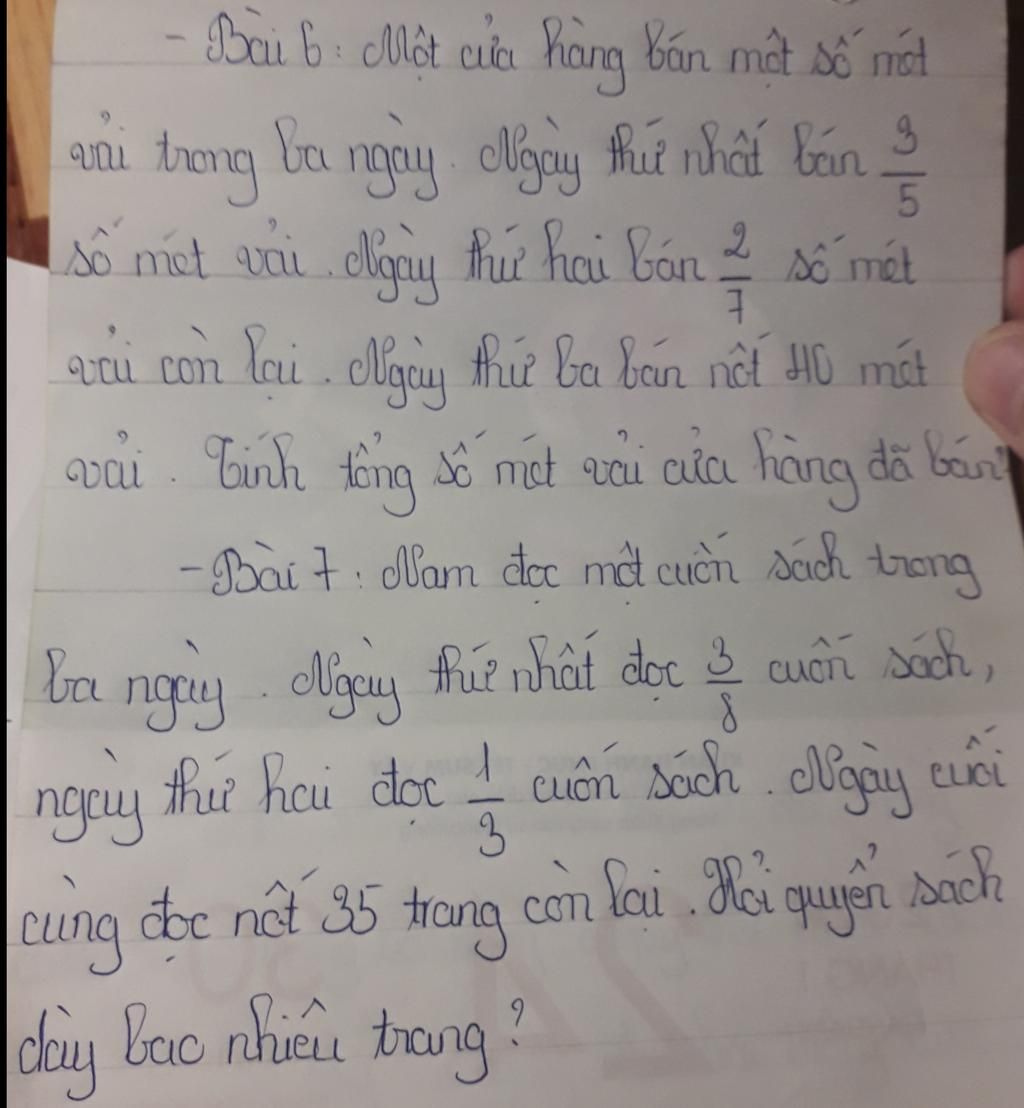 - Bài 6: Một cửa hàng bán một số mét
vải trong ba ngày. Ngày thứ nhất bán 3/5
số mét vải. Ngày thứ hai bán 2/7 số mét
vải còn lại. Ngày thứ ba bán nốt 40 mét
vải. Tính tổng số mét vải cửa hàng đã bán
- Bài 7: Nam đọc một cuốn sách trong
ba ngày. Ngày thứ nhất đọc 3/8 cuốn sách,
ngày thứ hai đọc 1/3 cuốn sách. Ngày cuối
cùng đọc nốt 35 trang còn lại. Hỏi quyển sách
dày bao nhiêu trang?